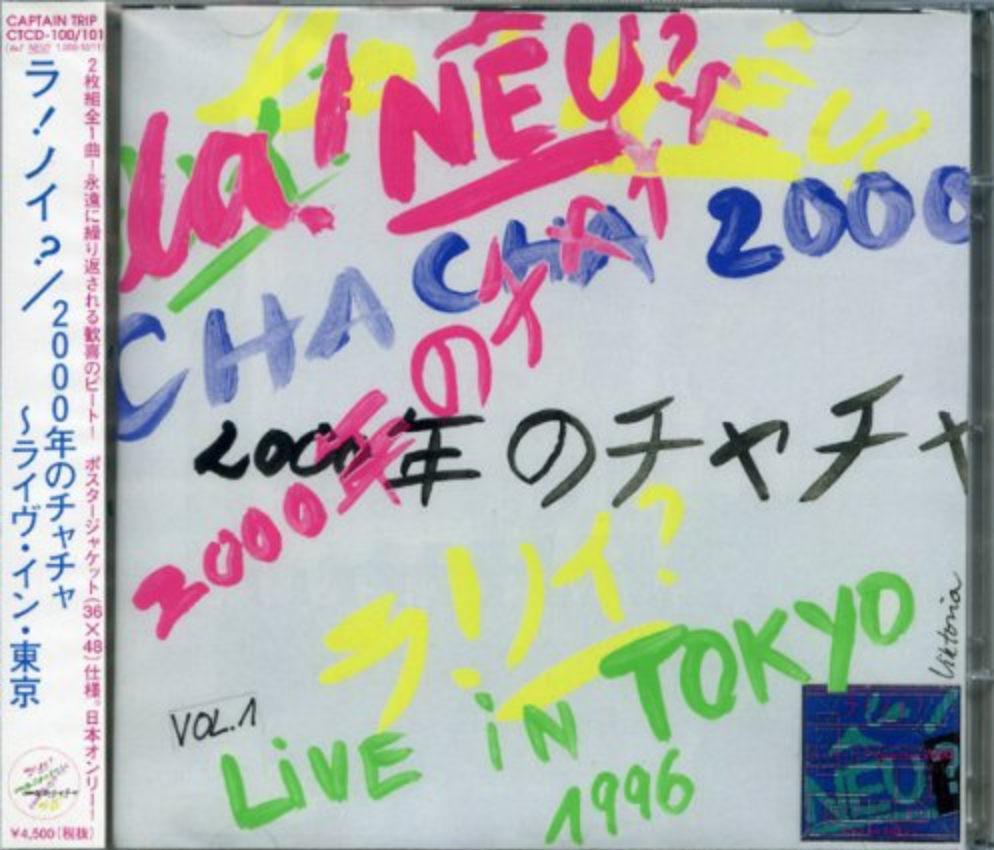 CAPTAIN TRIP
CTCD-100/101
ラ!ノイ?/
2000年のチャチャ
~ライヴ・イン・東京
2枚組全1曲!永遠に繰り返される歓喜のビート! ポスタージャケット(36×48)仕様。日本オンリー!
¥4,500(税抜)
la! NEU?
CHA CHA 2000
2000年のチャチャ
2000年のチャチャ
ラ!ノイ?
LiVE iN TOKYO
1996
VOL.1
Viktoria
NEU